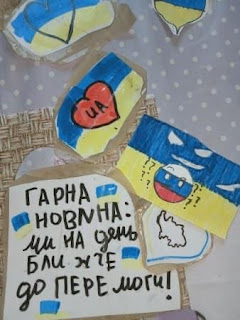 UA
? ?
? ?
? ?
ГАРНА
НОВИНА:
МИ НА ДЕНЬ
БЛИЖЧЕ
ДО ПЕРЕМОГИ!